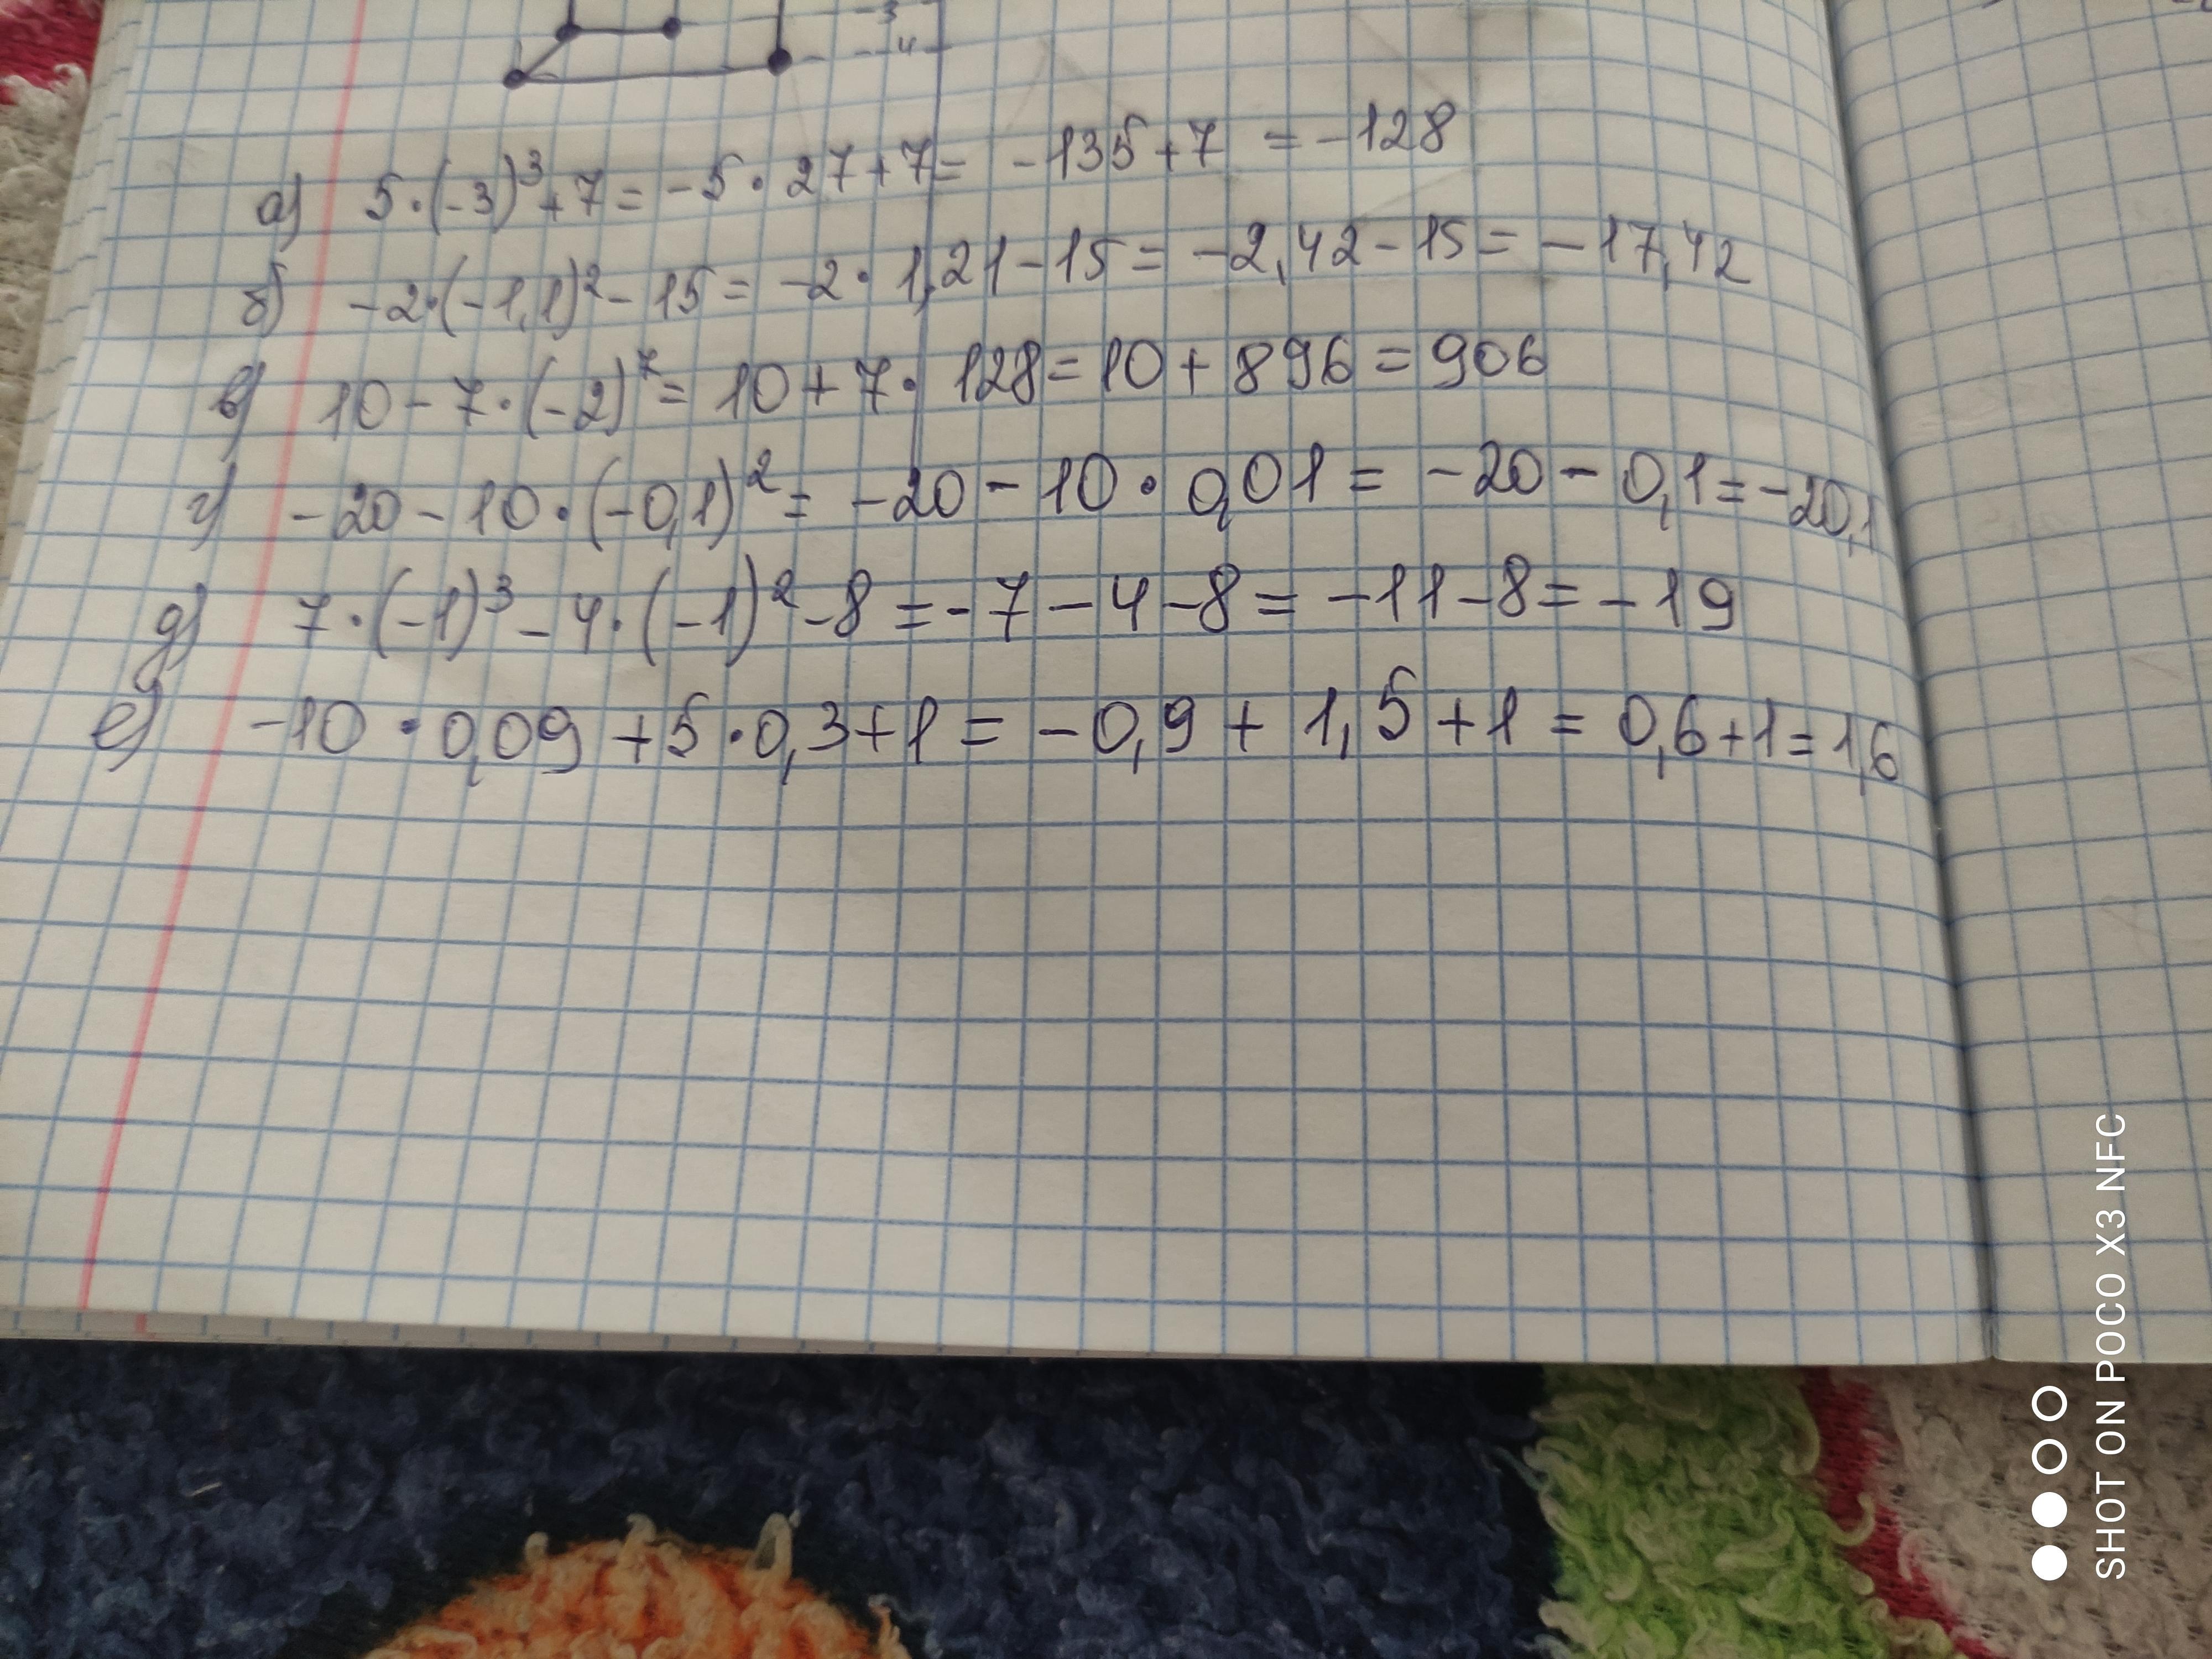 -3
-4
а) 5·(-3)³+7=-5·27+7= -135+7 =-128
б) -2·(-1,1)²-15= -2·1,21-15= -2,42-15= -17,42
в) 10-7·(-2)⁷= 10+7·128=10+896=906
г) -20-10·(-0,1)²= -20-10·0,01= -20-0,1=-20,1
д) 7·(-1)³-4·(-1)²-8=-7-4-8= -11-8= -19
е) -10·0,09+5·0,3+1= -0,9+1,5+1= 0,6+1=1,6
SHOT ON POCO X3 NFC